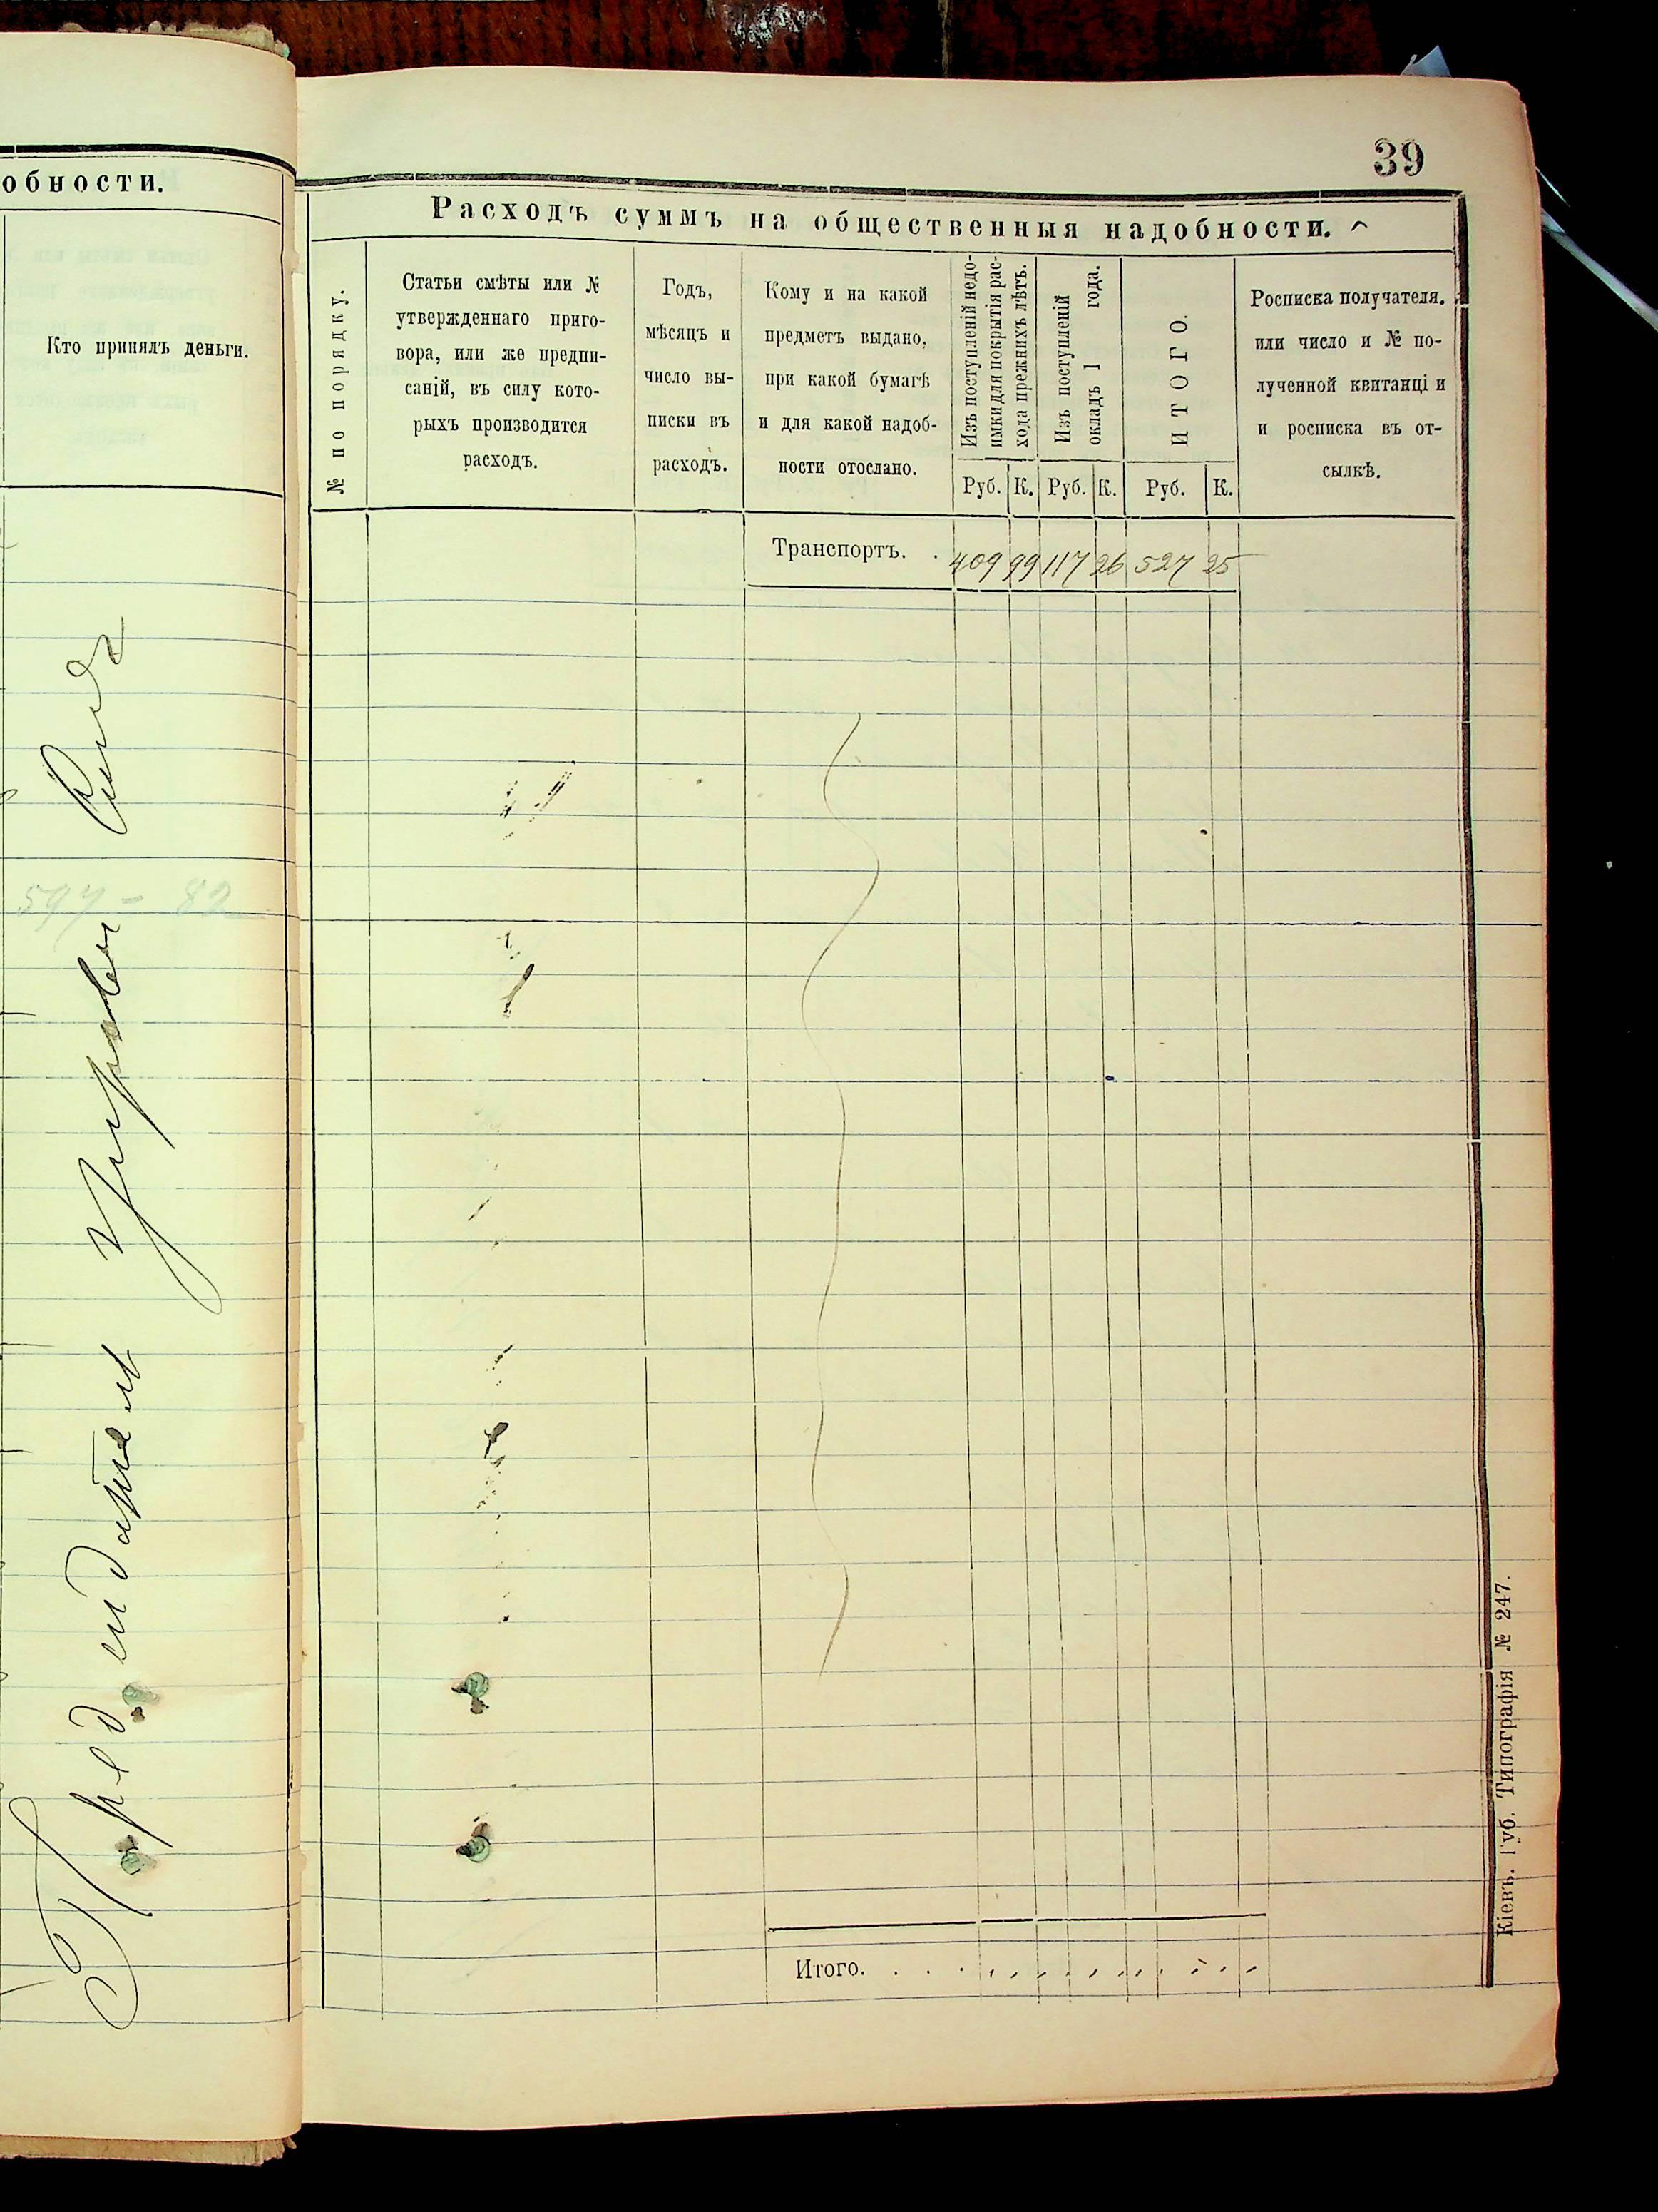 обности.
Кто принялъ деньги.
597 - 82
39
Расходъ суммъ на общественныя надобности.
№ по порядку.
Статьи смѣты или №
утвержденнаго приго-
вора, или же предпи-
саній, въ силу кото-
рыхъ производится
расходъ.
Годъ,
мѣсяцъ и
число вы-
писки въ
расходъ.
Кому и на какой
предметъ выдано,
при какой бумагѣ
и для какой надоб-
ности отослано.
Изъ поступленій недо-
имки для покрытія рас-
хода прежнихъ лѣтъ.
Изъ поступленій
окладъ 1 года.
ИТОГО.
Росписка получателя.
или число и № по-
лученной квитанці и
и росписка въ от-
сылкѣ.
Руб. К. Руб. К. Руб. К.
Транспортъ. . 409 99 117 26 527 25
Итого. . . .
Кіевъ. Губ. Типографія № 247.